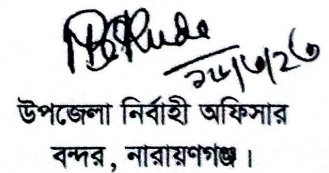 উপজেলা নির্বাহী অফিসার
বন্দর, নারায়ণগঞ্জ।